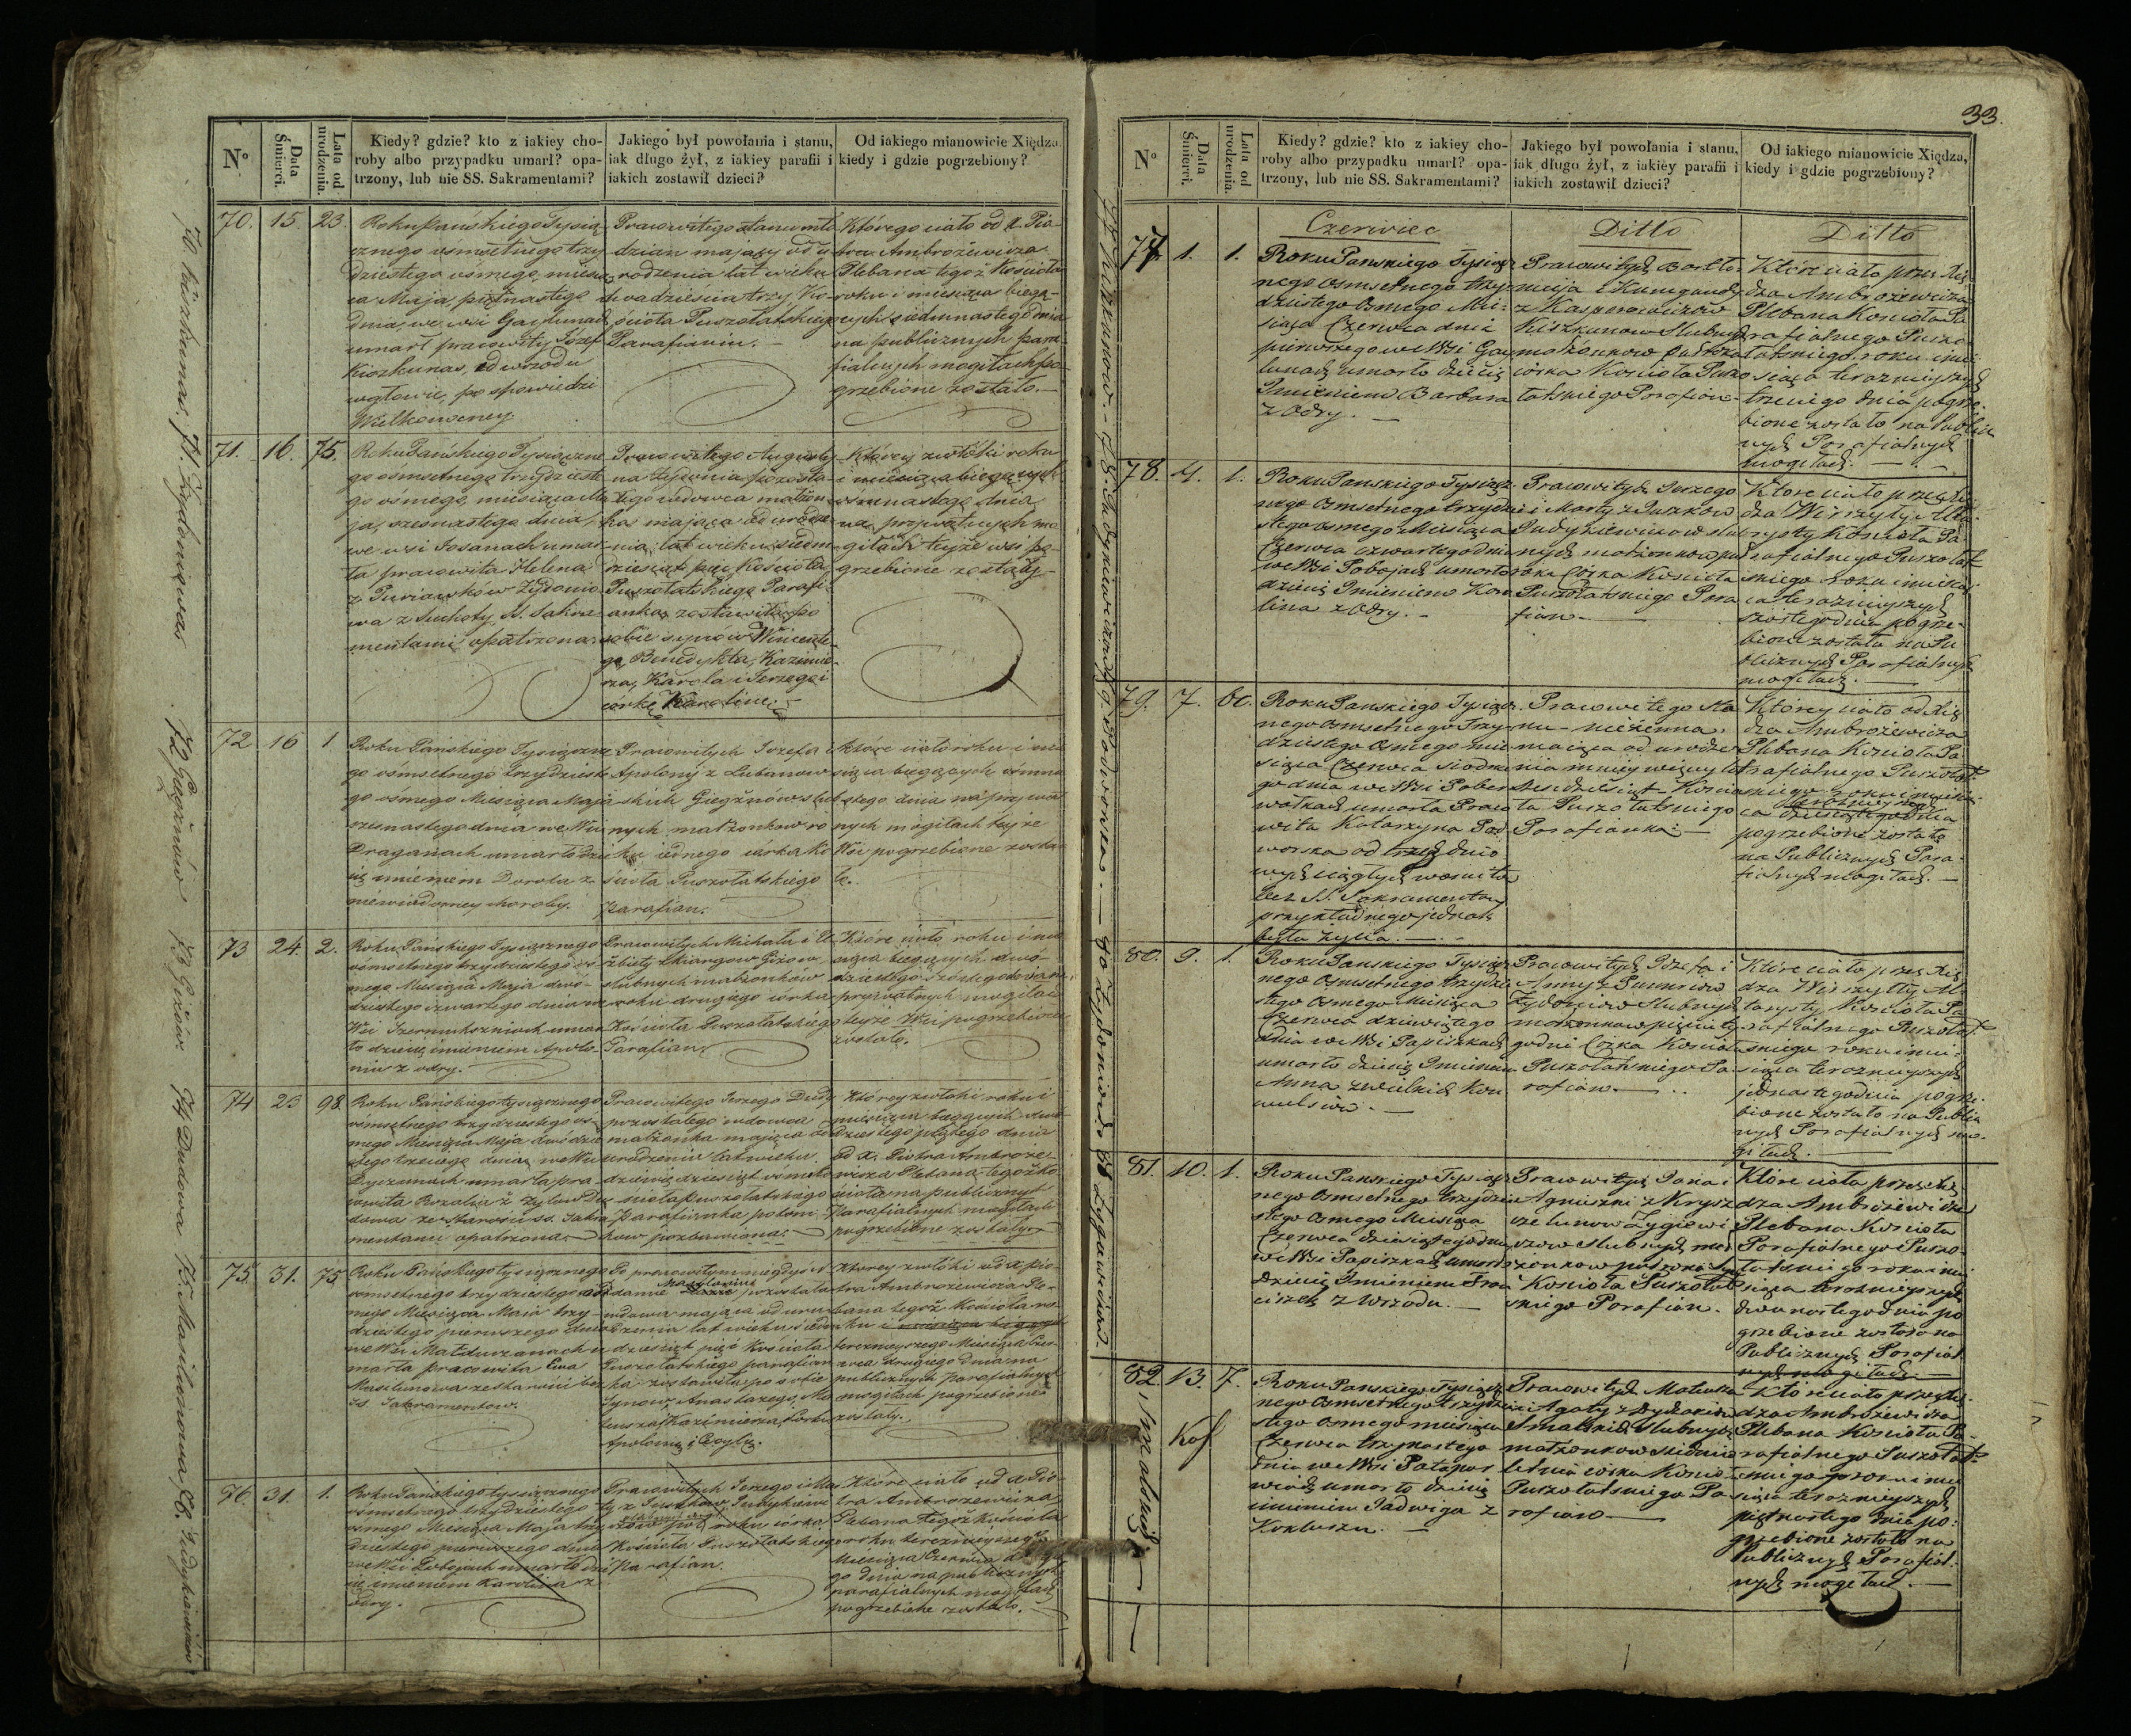 33.
Nº
Data Śmierci.
Lata od urodzenia.
Kiedy? gdzie? kto z iakiey cho-
roby albo przypadku umarł? opa-
trzony, lub nie SS. Sakramentami?
Jakiego był powołania i stanu,
iak długo żył, z iakiey parafii i
iakich zostawił dzieci?
Od iakiego mianowicie Xiędza
kiedy i gdzie pogrzebiony?
70. 15. 23.
Roku Pańskiego Tysią
cznego osmsetnego trzy
dziestego ósmego, miesią
ca Maja, piętnastego
dnia, we wsi
umarł pracowity Józef
Kiszkunas, od wrzodu
po spowiedzi
Wielkanocney
Pracowitego stanu mło
dzian mający od u
rodzenia lat wieku
dwadzieścia trzy, Ko
ścioła Puszołatskiego
Parafianin.
Którego ciało od X. Pio
tra Ambrożewicza
Plebana tegoż Kościoła
roku i miesiąca bieżą-
cych siedmnastego dnia
na publicznych para
fialnych mogiłach po-
grzebione zostało.
71. 16. 75.
Roku Pańskiego Tysiączne
go ósmsetnego trzydzieste
go ósmego, miesiąca Ma
ja, szesnastego dnia,
we wsi Josanach umar
ła pracowita Helena
z
z Suchoty, S. Sakra
mentami opatrzona.
Pracowitego Augusty
na pozosta
łego wdowca małżon
ka, mająca od urodze
nia, lat wieku siedm
dziesiąt pięć Kościoła
Puszołatskiego Parafi
anka, zostawiła po
sobie synów Wincente
go, Benedykta, Kazimie
rza, Karola i Jerzego i
córkę Karolinę.
Którey zwłoki roku
i miesiąca bieżących
ośmnastego dnia
na prywatnych mo
giłach tejże wsi po
grzebione zostały.
72 16 1
Roku Pańskiego Tysiączne
go ósmsetnego trzydzieste
go ósmego Miesiąca Maja
szesnastego dnia we Wsi
Draganach umarło dzie
cię imieniem Dorota z
niewiadomey choroby.
Pracowitych Jozefa i
Apolonij z Lubanow
skich Giegżnów ślub
nych małżonkow ro
ku iednego córka Ko
ścioła Puszołatskiego
Parafian.
które ciało roku i mie
siąca bieżących ósmna
stego dnia na prywat
nych mogiłach tejże
Wsi pogrzebione zosta
ło.
73 24. 2.
Roku Pańskiego Tysiącznego
ósmsetnego trzydziestego ós
mego Miesiąca Maja dwó-
dziestego czwartego dnia we
Wsi umar
ło dziecię imieniem Apolo
nia z odry.
Pracowitych Michała i El
żbiety
ślubnych małżonków
roku drugiego córka
Kościoła Puszołatskiego
Parafian.
Które ciało roku i mie
siąca bieżących dwó-
dziestego szóstego dnia na
prywatnych mogiłach
teyże Wsi pogrzebione
zostało.
74 23 98
Roku Pańskiego tysiącznego
osmsetnego trzydziestego ós-
mego Miesiąca Maja dwó dzie
stego trzeciego dnia we Wsi
umarła pra
cowita Rozalia
dowa ze starości SS. Sakra
mentami opatrzona.
Pracowitego Jerzego Dudy
pozostałego wdowca
małżonka mająca od
urodzenia lat wieku
dziewięćdziesiąt ośm Ko
ścioła Puszołatskiego
Parafianka potom
kow pozbawiona.
Którey zwłoki roku i
miesiąca bieżących dwó
dziestego piątego dnia
od X. Piotra Ambroże-
wicza Plebana tegoż Ko
ścioła na publicznych
Parafialnych mogiłach
pogrzebione zostały.
75. 31. 75
Roku Pańskiego tysiącznego
osmsetnego trzydziestego ós
mego Miesiąca Maja trzy-
dziestego pierwszego dnia
we Wsi u
marła pracowita Ewa
Masilunowa ze starości bez
SS. Sakramentow.
Po pracowitym niegdyś
pozostała
wdowa mająca od uro
dzenia lat wieku siedm
dziesiąt pięć Kościoła
Puszołatskiego parafian
ka zostawiła po sobie
Synow Anastazego, Ma
teusza, Kazimierza, Corki
Apolonię i Cecylę.
Którey zwłoki od X Pio
tra Ambrożewicza Ple
bana tegoż Kościoła ro
ku i miesiąca bieżących
teraznieyszego Miesiąca Czer
wca drugiego dnia na
publicznych parafialnych
mogiłach pogrzebione
zostały.
76. 31. 1.
Roku Pańskiego tysiącznego
ósmsetnego trzydziestego
osmego Miesiąca Maja trzy
dziestego pierwszego dnia
we Wsi Pobojach umarło dzie
cię imieniem Karolina z
odry.
Pracowitych Jerzego i Mar
ty z Juszkow Judykiewi
czow pół roku córka
Kościoła Puszołatskiego
Parafian.
Które ciało od X Pio-
tra Ambrozewicza
Plebana tegoż Kościoła
roku teraznieyszego
Miesiąca Czerwca
go dnia na publicznych
parafialnych mogiłach
pogrzebione zostało.
70 Kiszkunas. 71. Żydoniowa. 72 Giegżnów 73 Giżów. 74 Dudowa 75. Masilunowa 76. Judykiewiczów
Nº
Data Śmierci.
Lata od urodzenia.
Kiedy? gdzie? kto z iakiey cho-
roby albo przypadku umarł? opa-
trzony, lub nie SS. Sakramentami?
Jakiego był powołania i stanu,
iak długo żył, z iakiey parafii i
iakich zostawił dzieci?
Od iakiego mianowicie Xiędza,
kiedy i gdzie pogrzebiony?
Czerwiec
Ditto
Ditto
77. 1. 1.
Roku Panskiego Tysiącz
nego Osmsetnego trzy
dziestego Osmego Mie
siąca Czerwca dnia
pierwszego we Wsi Gay
lunach umarło dziecię
Imieniem Barbara
z Odry.
Pracowitych Bartło
mieja i Kunegundy
z Kasperowiczow
Kiszkunow Slubnych
małżonkow
córka Kościoła Puszo
łatskiego Parafian.
Które ciało przez Xię
dza Ambrożewicza
Plebana Kościoła Pa
rafialnego Puszo
łatskiego, roku i mie
siąca teraznieyszych
trzeciego dnia pogrze
bione zostało na Public
nych Parafialnych
mogiłach.
78. 4. 1.
Roku Panskiego Tysiącz
nego Osmsetnego trzydzie
stego osmego Miesiąca
Czerwca czwartego dnia
we Wsi Pobojach umarło
dziecię Imieniem Karo
lina z Odry.
Pracowitych Jerzego
i Marty z Juszkow
Judykiewiczow slub
nych małżonkow pół
roku Córka Kościoła
Puszołatskiego Para
fian.
Które ciało przez Xię
dza Wirszyłły Alta
rysty Kościoła Pa
rafialnego Puszołat
skiego roku i miesią
ca teraznieyszych
szostego dnia pogrze
bione zostało na Pu
blicznych Parafialnych
mogiłach.
79. 7. 60.
Roku Panskiego Tysiącz
nego Osmsetnego Trzy
dziestego Osmego mie
siąca Czerwca siodme
go dnia we Wsi Pober
wałkach umarła Praco
wita Katarzyna Pod
worska od trzech dnio
wych ciągłych womitow
bez S.S. Sakramentow
przykładnego jednak
była życia.
Pracowitego sta
nu - nieżenna,
maiąca od urodze
nia mniey więcey lat
sześćdziesiąt Koscio
ła Puszołatskiego
Parafianka.
Którey ciało od Xię
dza Ambrożewicza
Plebana Kościoła Pa
rafialnego Puszołat
skiego roku i miesią
ca teraznieyszych
dziesiątego dnia
pogrzebione zostało
na Publicznych Para
fialnych mogiłach.
80. 9. 1.
Roku Panskiego Tysiącz
nego Osmsetnego trzydzie
stego Osmego Miesiąca
Czerwca dziewiątego
dnia we Wsi Papiszkach
umarło dziecię Imieniem
Anna z wielkich Kon
wulsiow.
Pracowitych Jozefa i
Anny z
Żydoniow Slubnych
małżonkow pięciu ty
godni Córka Kościoła
Puszołatskiego Pa
rafian.
Które ciało przez Xię
dza Wirszyłły Al
tarysty Kościoła Pa
rafialnego Puszołat
skiego roku i mie
siąca teraznieyszych
jednastego dnia pogrze
bione zostało na Public
nych Parafialnych mo
giłach.
81. 10. 1.
Roku Panskiego Tysiącz
nego Osmsetnego trzydzie
stego Osmego Miesiąca
Czerwca dziesiątego dnia
we Wsi Papiszkach umarło
dziecię Imieniem Fran
ciszek z Wrzodu.
Pracowitych Jana i
Agnieszki z Krysz
czelunow Żygiewi
czow slubnych mał
żonkow pół roku syn
Kościoła Puszołat
skiego Parafian.
Które ciało przez Xię
dza Ambrożewicza
Plebana Kościoła
Parafialnego Puszo
łatskiego roku i mie
siąca teraznieyszych
dwunastego dnia po
grzebione zostało na
Publicznych Parafial
nych mogiłach.
82. 13. 7.
Kok
Roku Panskiego Tysiącz
nego Osmsetnego trzydzie
stego Osmego miesiąca
Czerwca trzynastego
dnia we Wsi
umarło dziecię
imieniem Jadwiga z
Kokluszu.
Pracowitych Mateusza
i Agaty
Smalskich Slubnych
małżonkow siedmio
letnia córka Kościo
ła Puszołatskiego Pa
rafian
Które ciało przez Xię
dza Ambrożewicza
Plebana Kościoła Pa
rafialnego Puszołat
skiego roku i mie
siąca teraznieyszych
piętnastego dnia po
grzebione zostało na
Publicznych Parafial
nych mogiłach.
77 Kiszkunow. 78. Judykiewiczow 79. Podworska. 80 Żydoniow 81 Żygiewiczow. 82, Smalskich